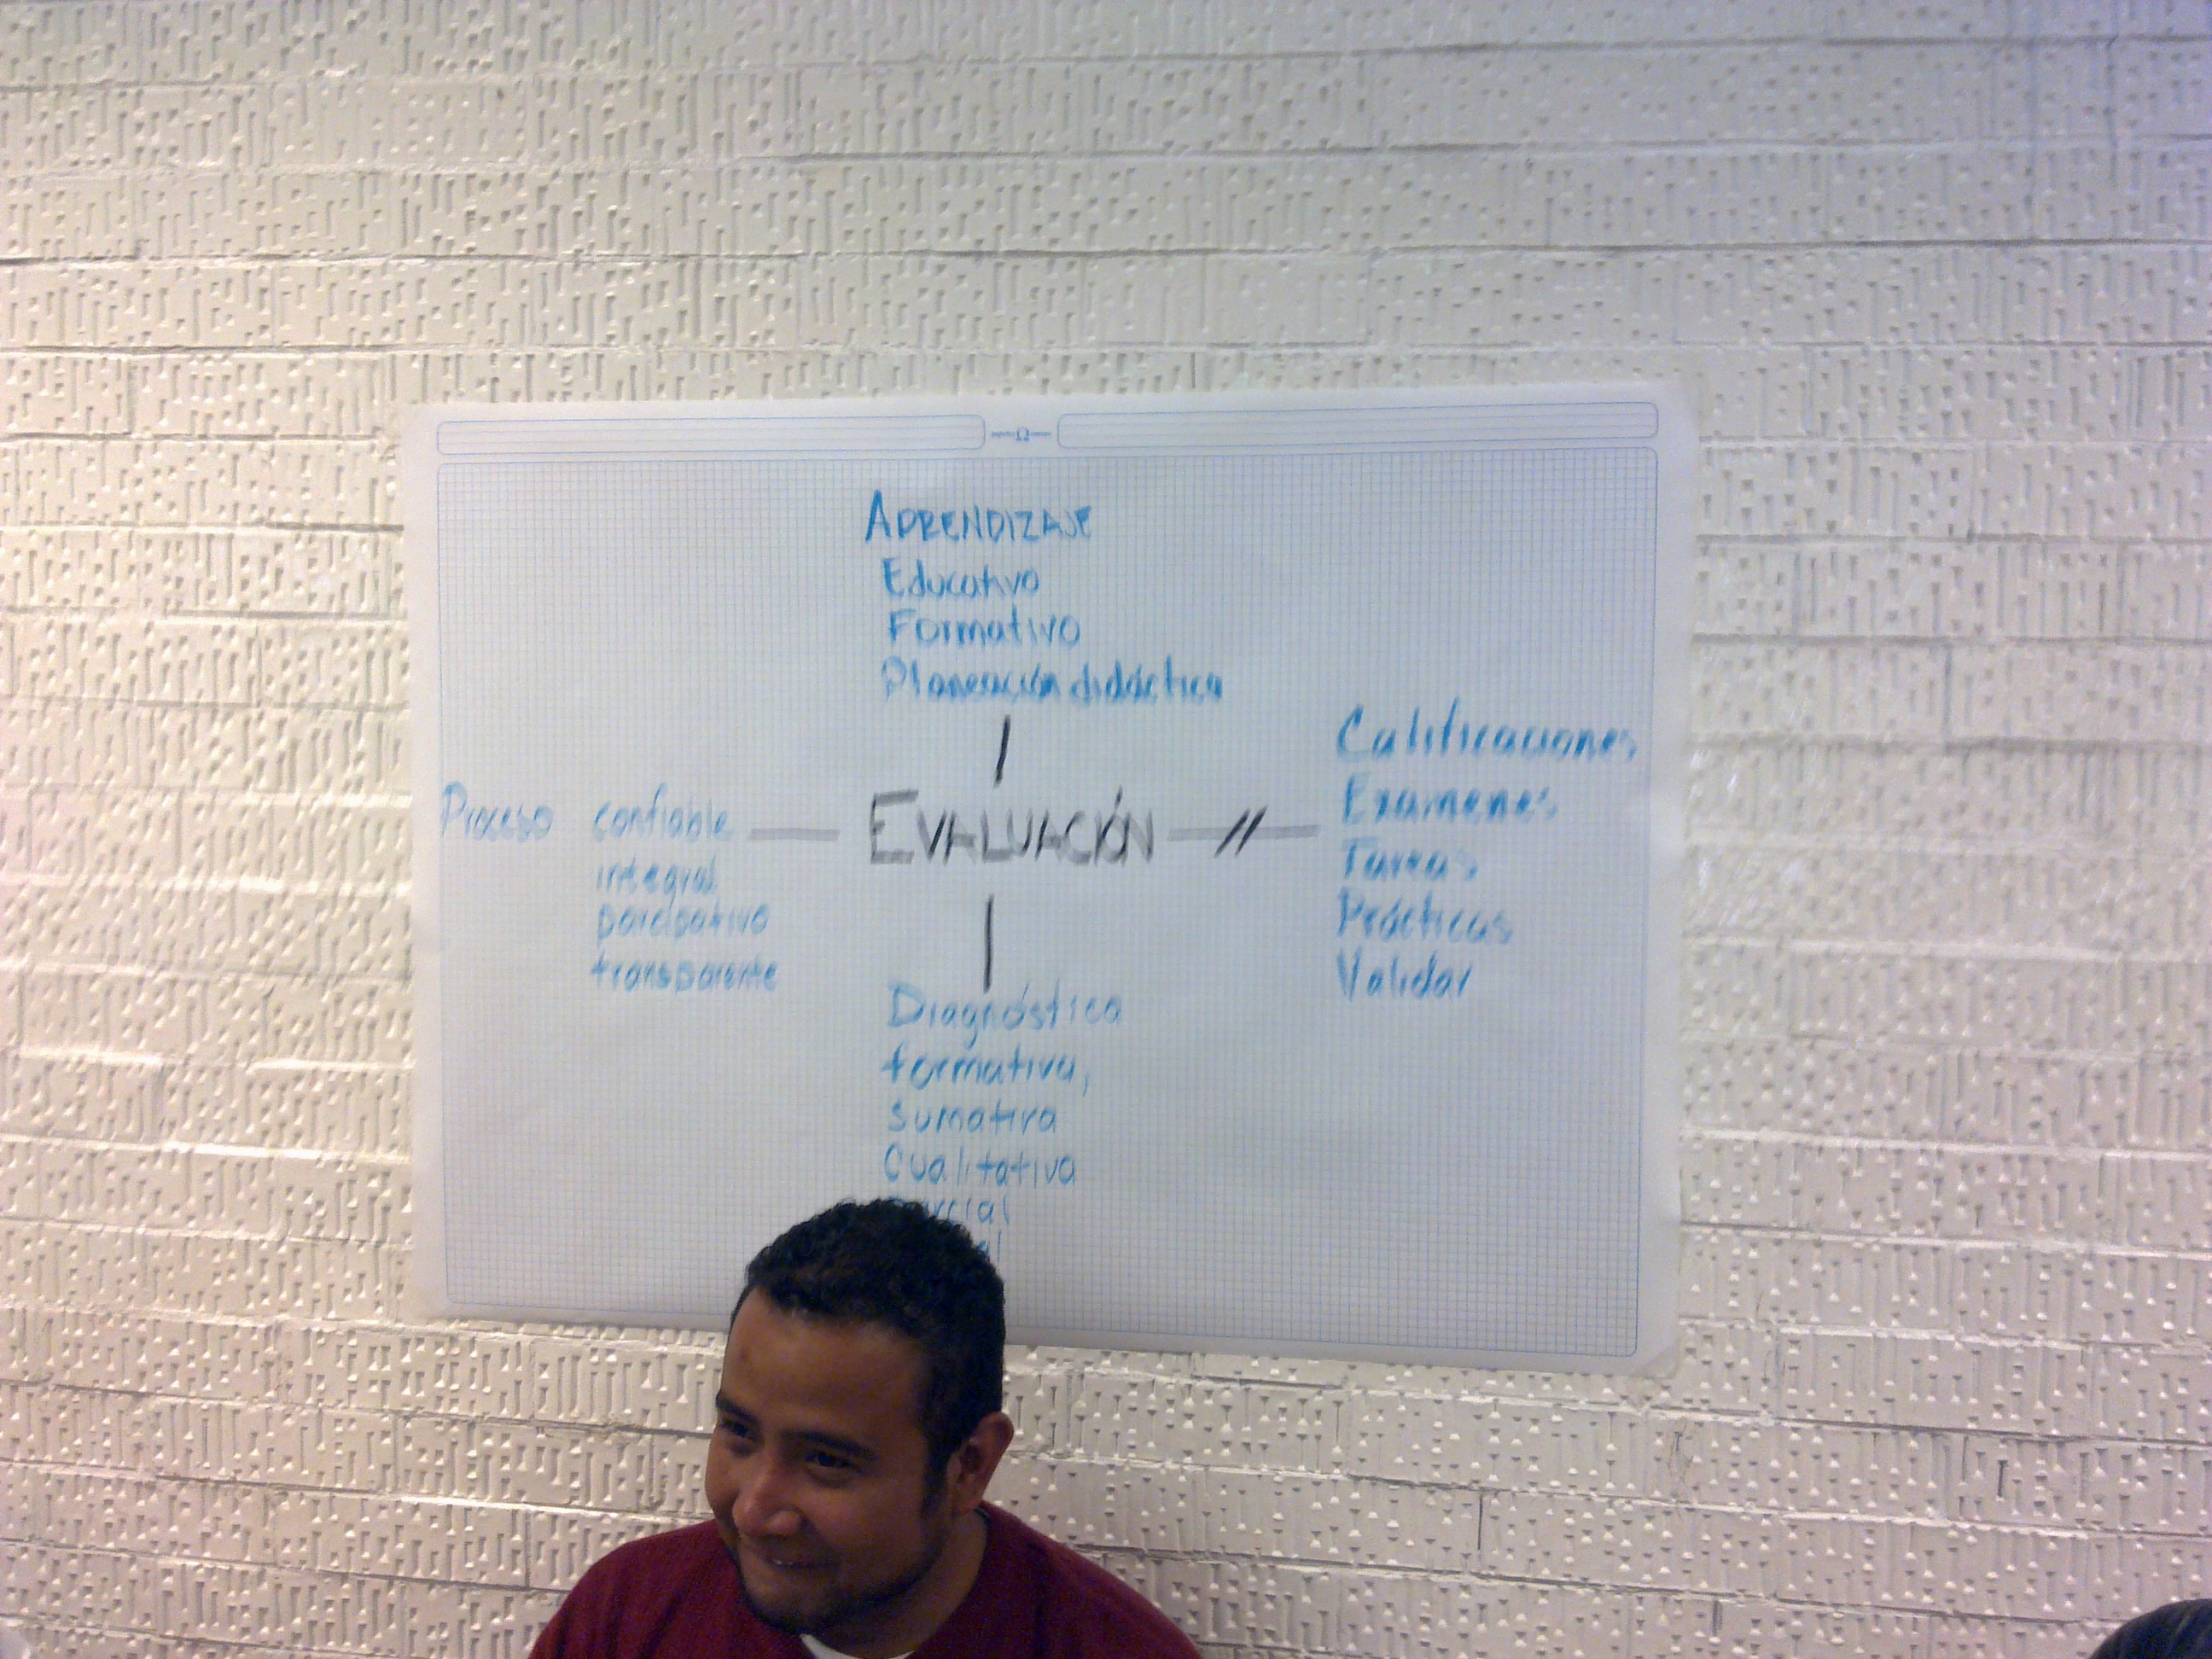 APRENDIZAJE
Educativo
Formativo
Planeación didáctica
Proceso confiable
integral
parcipativo
transparente
EVALUACIÓN
Calificaciones
Examenes
Tareas
Prácticas
Validar
Diagnóstica
formativa,
sumativa
Cualitativa